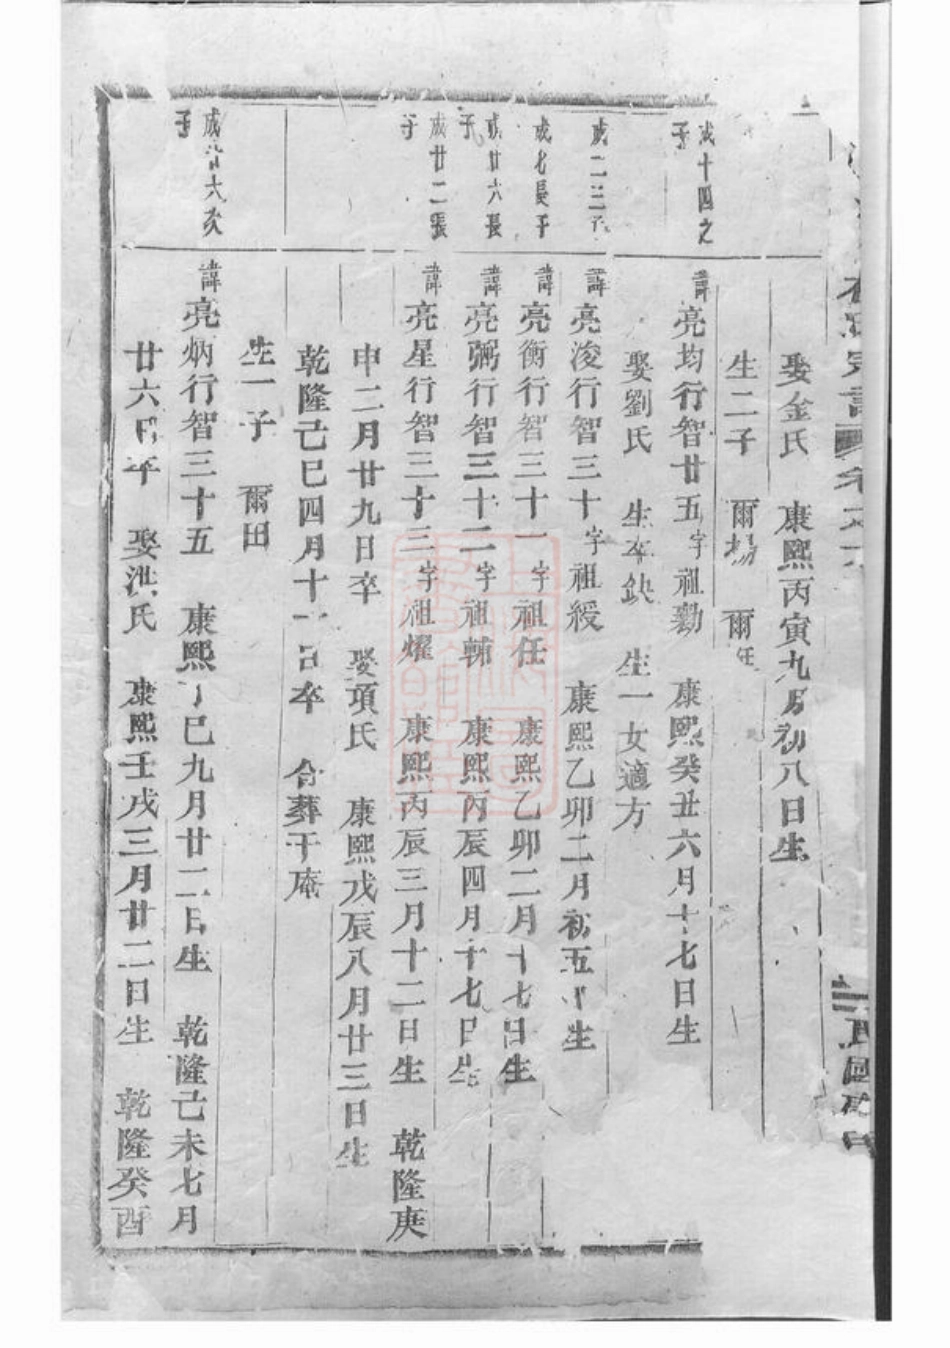 娶金氏 康熙丙寅九月初八日生
生二子 爾揚 爾任
成十四之子
諱亮均行智廿五字祖勷 康熙癸丑六月十七日生
娶劉氏 生卒缺 生一女適方
成二三子
諱亮浚行智三十字祖綬 康熙乙卯二月初五日生
成七長子
諱亮衡行智三十一字祖任 康熙乙卯二月十七日生
成廿六長子
諱亮弼行智三十二字祖輔 康熙丙辰四月十七日生
成廿二張子
諱亮星行智三十三字祖燿 康熙丙辰三月十二日生 乾隆庚
申二月廿九日卒 娶項氏 康熙戊辰八月廿三日生
乾隆己巳四月十一日卒 合葬干庵
生一子 爾田
成廿六次子
諱亮炳行智三十五 康熙丁巳九月廿二日生 乾隆己未七月
廿六日卒 娶洪氏 康熙壬戌三月廿二日生 乾隆癸酉